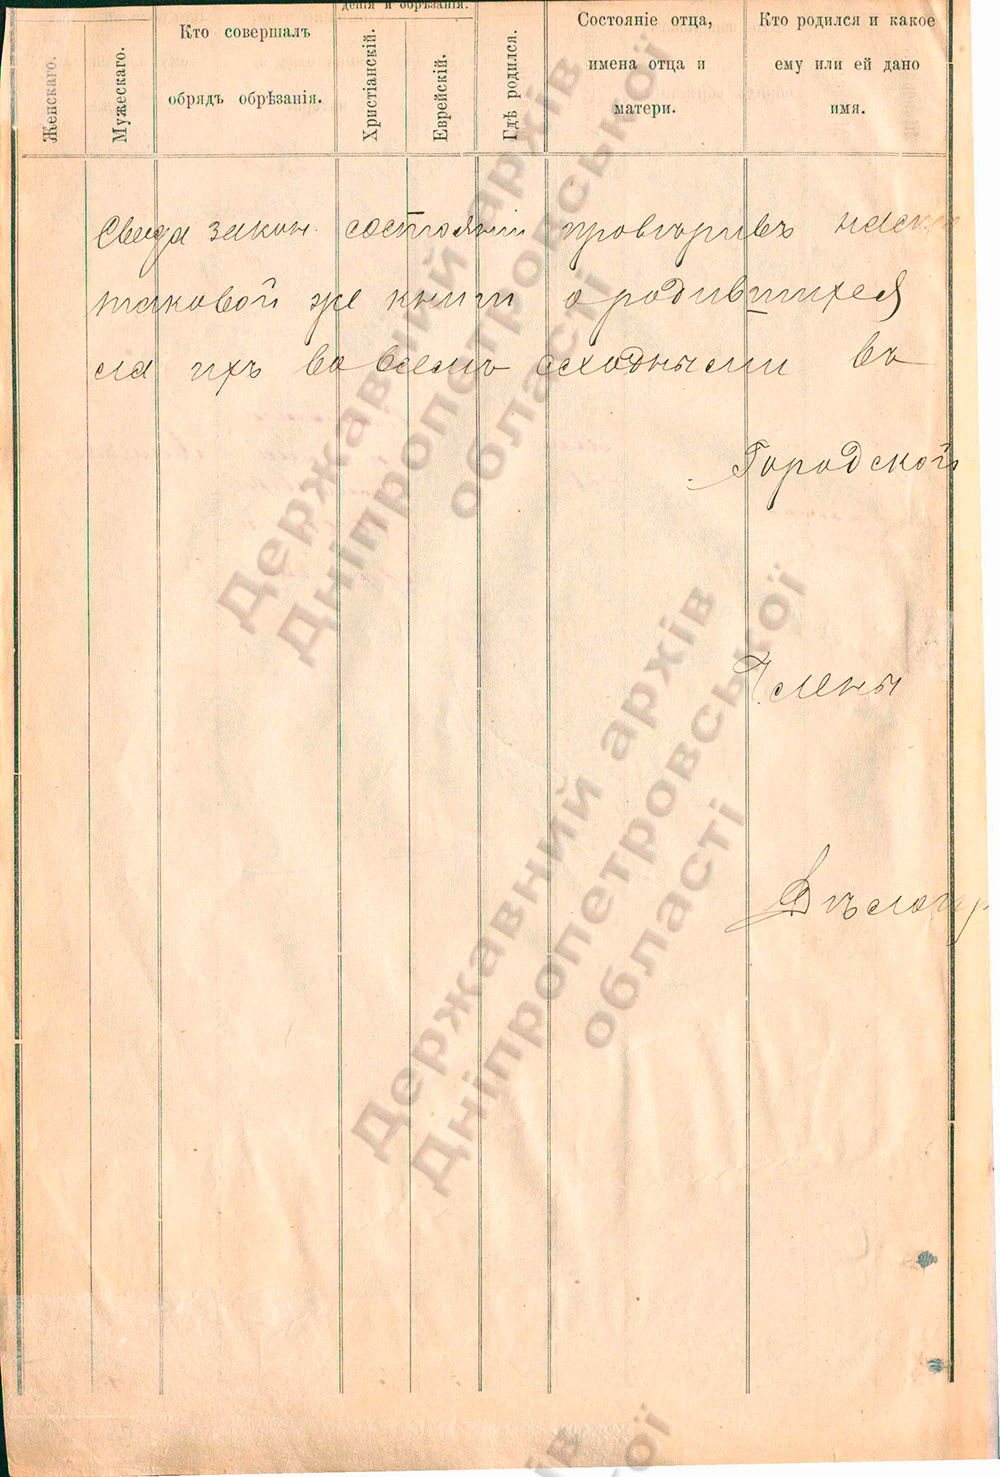 Женскаго.
Мужескаго.
Кто совершалъ
обрядъ обрѣзанія.
денія и обрѣзанія.
Христіанскій.
Еврейскій.
Гдѣ родился.
Состояніе отца,
имена отца и
матери.
Кто родился и какое
ему или ей дано
имя.
закон. состояніи провѣривъ
таковой же книги о родившихся
ихъ во всемъ сходными въ
Городской
Члены
Державний архів
Дніпропетровської
області
Державний архів
Дніпропетровської
області